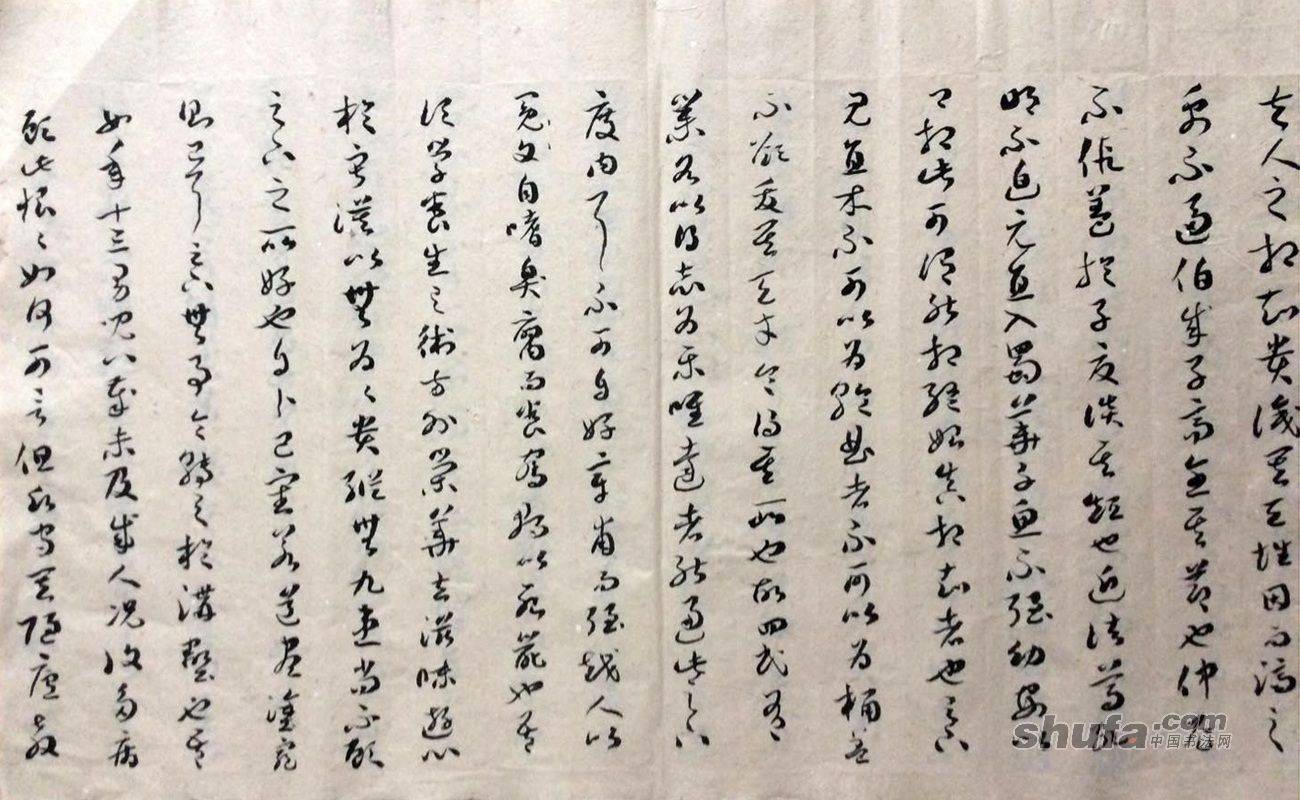 夫人之相知貴識其天性因而濟之
禹不逼伯成子高全其節也仲尼
不假蓋於子夏護其短也近諸葛孔
明不迫元直入蜀華子魚不強幼安以
卿相此可謂能相終始真相知者也足下
見直木不可以為輪曲者不可以為桷蓋
不欲枉其天才令得其所也故四民有
業各以得志為樂唯達者能通此足下
度内耳不可自好章甫而強越人以
冕文自嗜臭腐而養鴛雛以死鼠也吾
頃學養生之術方外榮華去滋味遊心
於寂漠以無為為貴縱無九患尚不顧
足下之所好也自卜已審若道盡塗窮
則已耳足下無事令轉之於溝壑也吾
女年十三男兒八歲未及成人況復多病
顧此悢々如何可言但欲守陋廬教
shufa.com
中国书法网